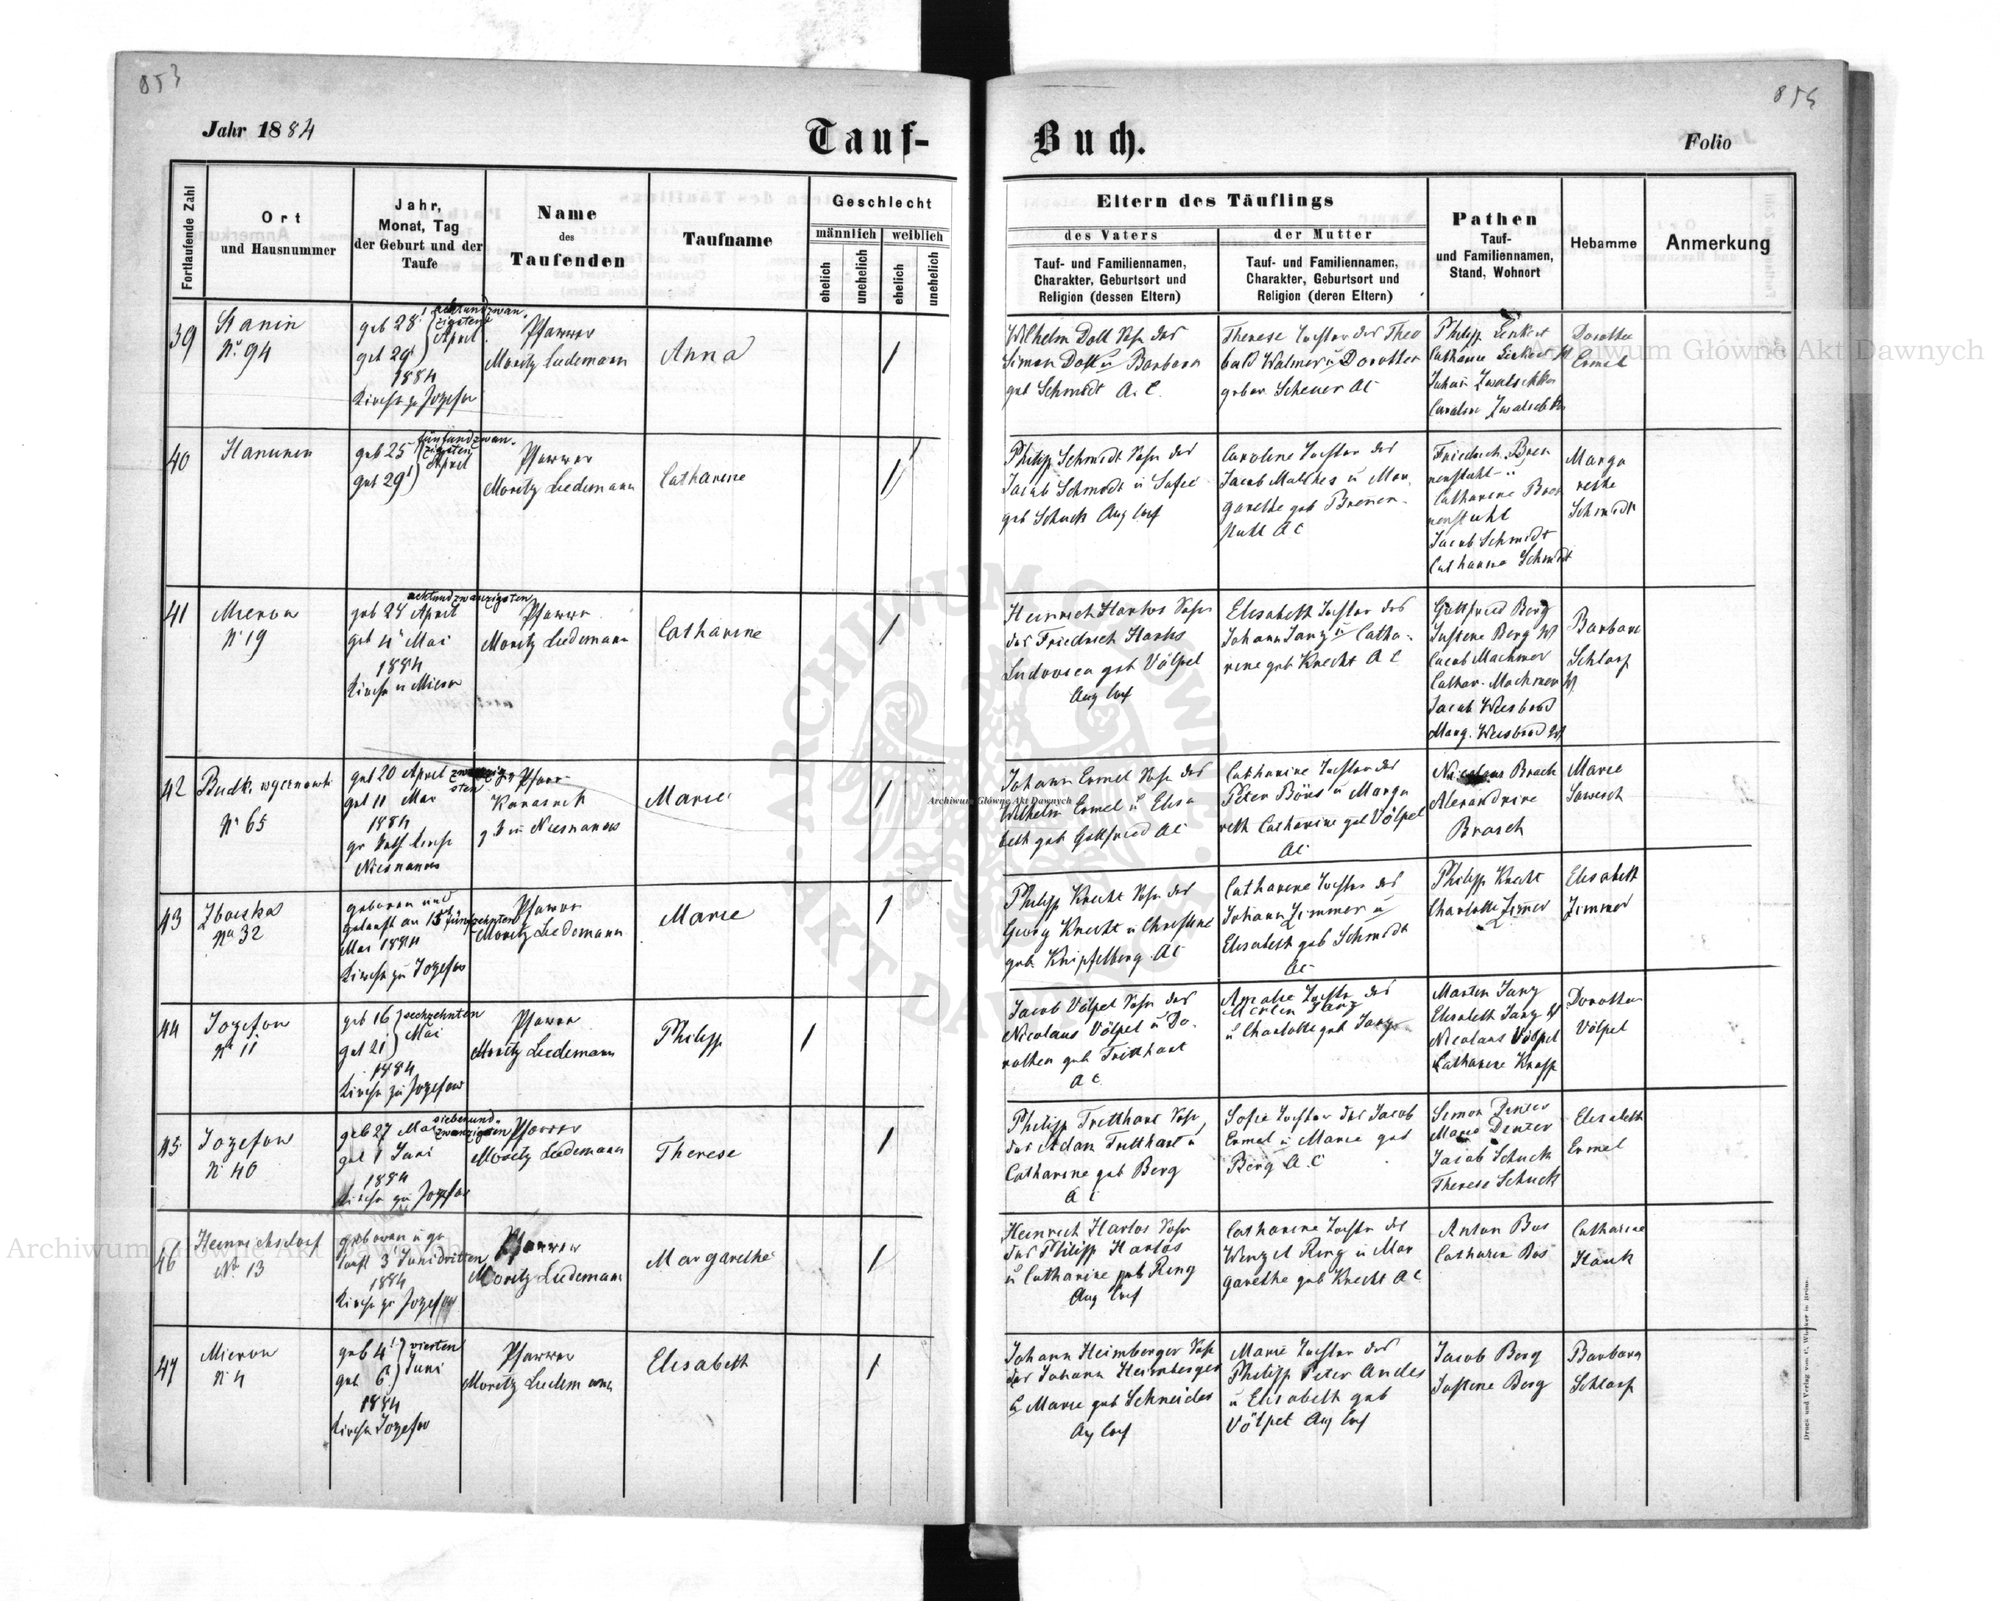 853
854
Jahr 1884
Tauf-
Buch.
Folio
Fortlaufende Zahl
Ort
und Hausnummer
Jahr,
Monat, Tag
der Geburt und der
Taufe
Name
des
Taufenden
Taufname
Geschlecht
männlich
weiblich
ehelich
unehelich
ehelich
unehelich
Eltern des Täuflings
des Vaters
der Mutter
Tauf- und Familiennamen,
Charakter, Geburtsort und
Religion (dessen Eltern)
Tauf- und Familiennamen,
Charakter, Geburtsort und
Religion (deren Eltern)
Pathen
Tauf-
und Familiennamen,
Stand, Wohnort
Hebamme
Anmerkung
39
Stanin
N. 94
geb 28 achtundzwan-
zigsten
get 29 April
1884
Kirche zu Jozefow
Pfarrer
Moritz Luedemann
Anna
Wilhelm Doll Sohn des
Simon Doll u Barbara
geb Schmidt A. C.
Therese Tochter des Theo
bald Walmer u Dorothea
geber Scheuer AC
Philipp Linkert
Catharine Linkert
Caroline
Dorothee
Ermel
40
Hanunin
geb 25 fünfundzwan-
zigsten
get 29 April
Pfarrer
Moritz Luedemann
Catharine
Philipp Schmidt Sohn des
Jacob Schmidt u Sofie
geb Schuck Aug Conf
Caroline Tochter des
Jacob Matthes u Mar
garethe geb Brennen-
stuhl AC
Friedrich Bren
nenstuhl
Catharine Bren
nenstuhl
Jacob Schmidt
Catharina Schmidt
Marga
rethe
Schmidt
41
Mierow
N 19
achtundzwanzigsten
geb 28 April
get 4 Mai
1884
Kirche u Mierow
Pfarrer
Moritz Luedemann
Catharine
Heinrich Harlos Sohn
des Friedrich Harlos
Ludovica geb Völpel
Aug Conf
Elisabeth Tochter des
Johann Janz u Catha-
rine geb Knecht AC
Gottfried Berg
Justine Berg
Jacob Machmer
Cathar. Machmer
Jacob Weisbrod
Marg. Weisbrod
Barbara
Schlarf
42
N 65
geb 20 April zwanzig
sten
get 11 Mai
1884
Pfarr
Marie
Johann Ermel Sohn des
Wilhelm Ermel u Elisa
beth geb Gottfried AC
Catharine Tochter des
Peter Börs u Marga
reth Catharine geb Völpel
AC
Nicolaus Brach
Alexandrine
Brasch
Marie
43
No 32
geboren und
getauft am 15 fünfzehnten
Mai 1884
Kirche zu Jozefow
Pfarrer
Moritz Luedemann
Marie
Philipp Knecht Sohn des
Georg Knecht u Christine
geb Knipfelberg AC
Catharine Tochter des
Johann Zimmer u
Elisabeth geb Schmidt
AC
Philipp Knecht
Charlotte Zimmer
Elisabeth
Zimmer
44
Jozefow
N 11
geb 16 sechzehnten
get 21 Mai
1884
Kirche zu Jozefow
Pfarrer
Moritz Luedemann
Philipp
Jacob Völpel Sohn des
Nicolaus Völpel u Do-
rothea geb Tritthart
AC
Amalie Tochter des
Martin Janz
u Charlotte geb Janz
Martin Janz
Elisabeth Janz
Nicolaus Völpel
Catharine Kropp
Dorothea
Völpel
45
Jozefow
N 40
geb 27 Mai siebenund-
zwanzigsten
get 1 Juni
1884
Kirche zu Jozefow
Pfarrer
Moritz Luedemann
Therese
Philipp Tritthart Sohn
des Adam Tritthart u
Catharine geb Berg
AC
Sofie Tochter des Jacob
Ermel u Marie geb
Berg A C
Simon Denzer
Marie Denzer
Jacob Schuck
Therese Schuck
Elisabeth
Ermel
46
Heinrichsdorf
N 13
geboren u ge
tauft 3 Juni dritten
1884
Kirche zu Jozefow
Pfarrer
Moritz Luedemann
Margarethe
Heinrich Harlos Sohn
des Philipp Harlos
u Catharine geb Ring
Aug Conf
Catharine Tochter des
Wenzel Ring u Mar
garethe geb Knecht AC
Anton Bus
Catharin Bus
Catharine
Hauk
47
Mierow
N 4
geb 4 vierten
get 6 Juni
1884
Kirche Jozefow
Pfarrer
Moritz Luedemann
Elisabeth
Johann Heimberger Sohn
des Johann Heimberger
u Marie geb Schneider
Aug Conf
Marie Tochter des
Philipp Peter Andes
u Elisabeth geb
Völpel Aug Conf
Jacob Berg
Justine Berg
Barbara
Schlarf
Archiwum Główne Akt Dawnych
Archiwum Główne Akt Dawnych
Archiwum Główne Akt Dawnych
ARCHIWUM GŁÓWNE AKT DAWNYCH